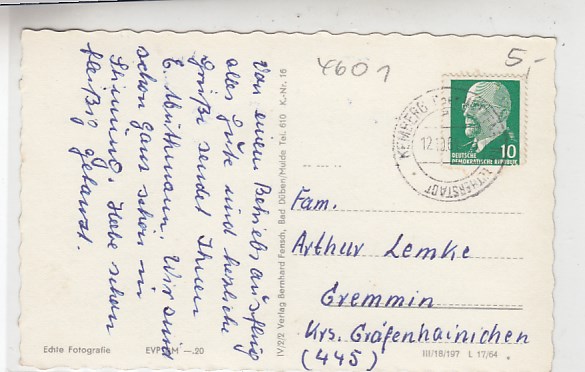 Von einem Betriebsausflug
alles Gute und herzliche
Grüße sendet Ihnen
E. Wirthmann. Wir sind
schon ganz schön in
Stimmung. Habe schon
fleißig getanzt.
IV/2/2 Verlag Bernhard Fensch, Bad Düben/Mulde Tel. 610 K.-Nr. 16
Echte Fotografie
EVP DM —.20
4601
5,-
KEMBERG
12.10.
LUTHERSTADT
DEUTSCHE
DEMOKRATISCHE REPUBLIK
10
Fam.
Arthur Lemke
Gremmin
Krs. Gräfenhainichen
(445)
III/18/197 L 17/64